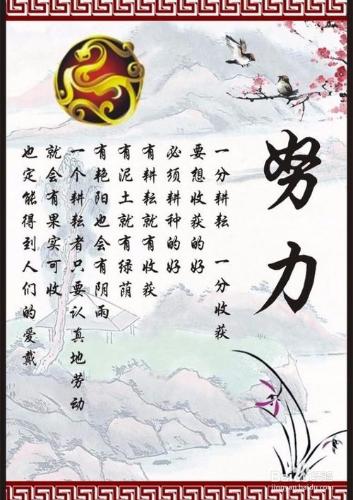 努力
一分耕耘 一分收获
要想收获的好
必须耕种的好
有耕耘就有收获
有泥土就有绿荫
有艳阳也会有阴雨
一个耕耘者只要认真地劳动
就会有果实可收
也定能得到人们的爱戴
jingyan.baidu.com